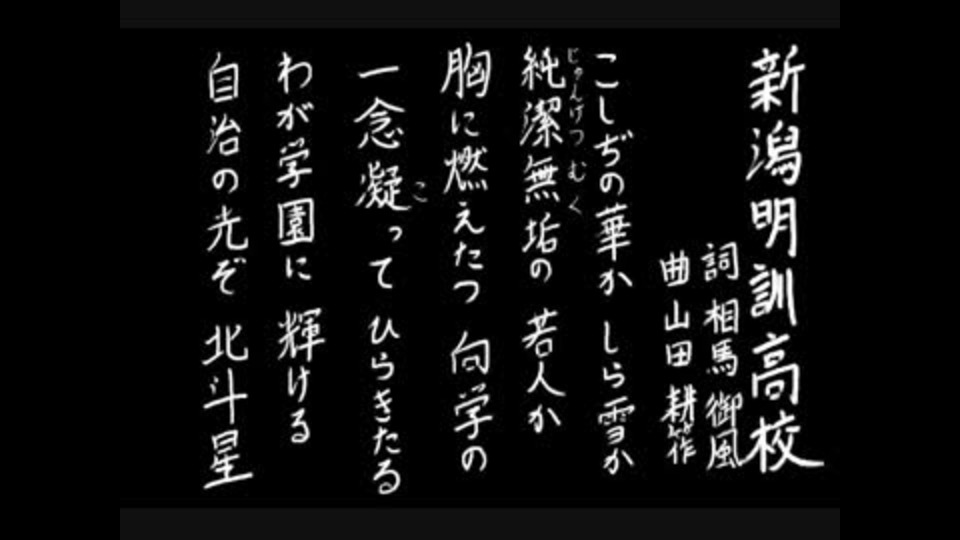 新潟明訓高校
詞 相馬御風
曲 山田耕筰
こしぢの華か しら雪か
じゅんけつ むく
純潔無垢の 若人か
胸に燃えたつ 向学の
こ
一念凝って ひらきたる
わが学園に 輝ける
自治の光ぞ 北斗星